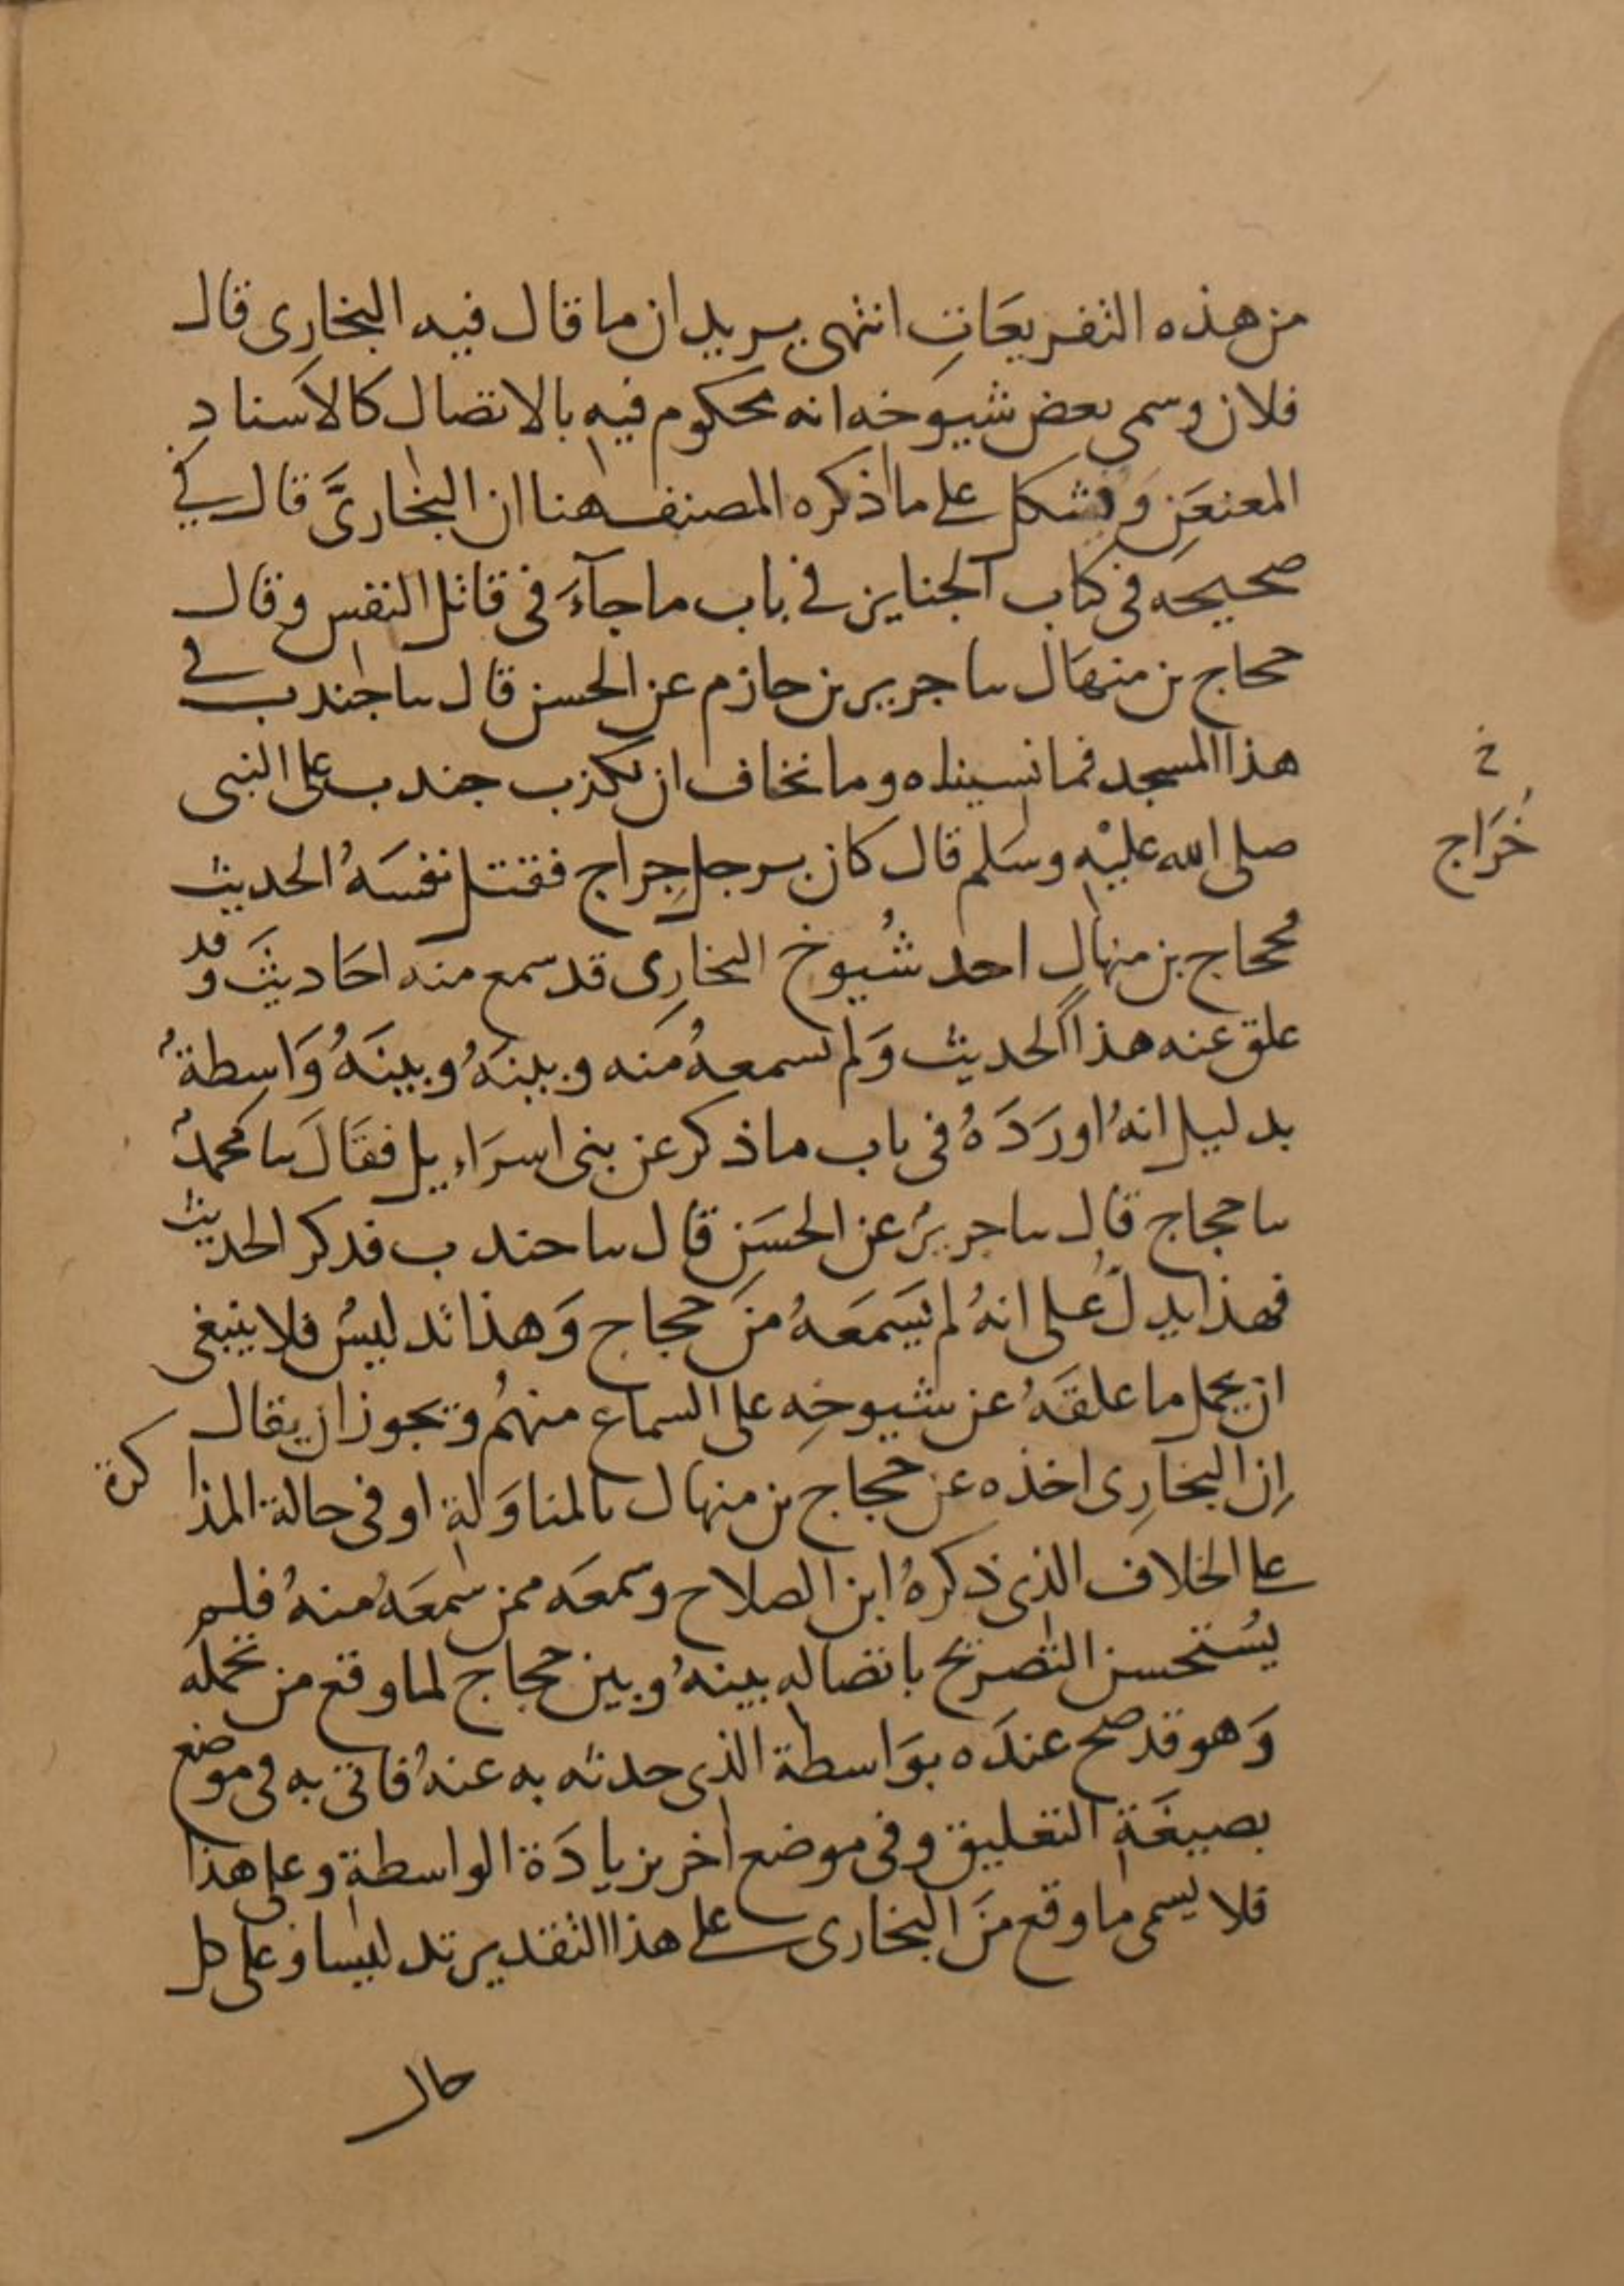 من هذه التفريعات انتهى يريد ان ما قال فيه البخاري قال
فلان وسمى بعض شيوخه انه محكوم فيه بالاتصال كالاسناد
المعنعن ويشكل على ما ذكره المصنف هنا ان البخاريَّ قال في
صحيحه في كتاب الجنايز في باب ما جآءَ في قاتل النفس وقال
حجاج بن منهال سا جرير بن حازم عن الحسن قال سا جندب في
هذا المسجد فما نسيناه وما نخاف ان يكذب جندب على النبي
صلى الله عليْه وسلم قال كان برجل جِراج فقتل نفسَهُ الحديث
خ
خُرَاج
فحجاج بن منهال احد شُيوخ البخاري قد سمع منه احَاديثَ وقد
علق عنه هذا الحديث وَلم يسمعهُ منه وبينهُ وبينَهُ وَاسطةٌ
بدليل انهُ اورَدَهُ في باب ما ذكر عن بني اسرَاءيل فقَالَ سا محمدٌ
سا حجاج قال سا جريرٌ عن الحسَنِ قال سا جندب فذكر الحديث
فهذا يدلُ على انهُ لم يسَمعَهُ منَ حجاج وَهذا تدليسُ فلا ينبغي
ان يحمل ما علقَهُ عن شيوخِه على السماع منهُم ويجوز ان يقال
اِن البخاري اخذه عن حجاج بن منهال بالمناوَلة او في حالة المذا
كرة
على الخلاف الذي ذكرهُ ابن الصلاح وسمعَه ممن سَمعَهُ منهُ فلم
يسُتحسن التصريح باتصاله بينهُ وبين حجاج لما وقع من تحمله
وَهو قد صح عندَه بوَاسطة الذي حدثه به عنهُ فاتى به في موضع
بصيغَة التعليق وفي موضع اخر بزيادَة الواسطة وعلى هذا
فلا يسمى ما وقع منَ البخاري على هذا التقدير تدليسا وعلى كل
حال